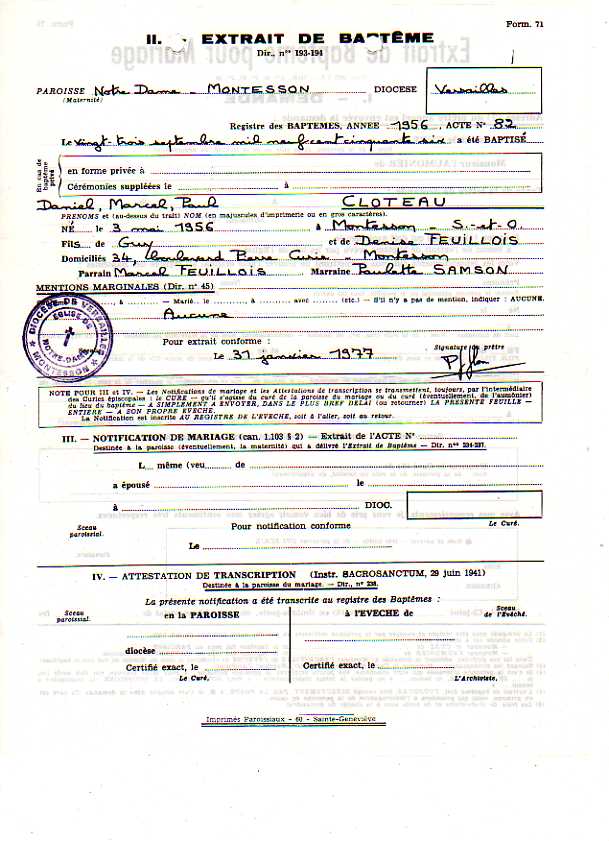 Form. 71
II. EXTRAIT DE BAPTÊME
Dir., nos 193-194
PAROISSE Notre Dame - MONTESSON DIOCESE Versailles
(Maternité)
Registre des BAPTEMES, ANNEE 1956, ACTE N° 82
Le vingt-trois septembre mil neuf cent cinquante six a été BAPTISÉ
En cas de baptême privé
en forme privée à
Cérémonies suppléées le à
Daniel, Marcel, Paul CLOTEAU
PRENOMS et (au-dessus du trait) NOM (en majuscules d'imprimerie ou en gros caractères).
NÉ le 3 mai 1956 à Montesson - S.-et-O.
Fils de Guy et de Denise FEUILLOIS
Domiciliés 34, boulevard Pierre Curie - Montesson
Parrain Marcel FEUILLOIS Marraine Paulette SAMSON
MENTIONS MARGINALES (Dir. n° 45)
à — Marié.. le, à avec (etc.) — S'il n'y a pas de mention, indiquer : AUCUNE.
Aucune
DIOCÈSE DE VERSAILLES
EGLISE DE
NOTRE-DAME
MONTESSON
Pour extrait conforme :
Le 31 janvier 1977
Signature du prêtre
NOTE POUR III et IV. — Les Notifications de mariage et les Attestations de transcription se transmettent, toujours, par l'intermédiaire
des Curies épiscopales : le CURE — qu'il s'agisse du curé de la paroisse du mariage ou du curé (éventuellement, de l'aumônier)
du lieu du baptême — A SIMPLEMENT A ENVOYER, DANS LE PLUS BREF DELAI (ou retourner) LA PRESENTE FEUILLE —
ENTIERE — A SON PROPRE EVECHE.
La Notification est inscrite AU REGISTRE DE L'EVECHE, soit à l'aller, soit au retour.
III. — NOTIFICATION DE MARIAGE (can. 1.103 § 2) — Extrait de l'ACTE N°
Destinée à la paroisse (éventuellement, la maternité) qui a délivré l'Extrait de Baptême — Dir. nos 234-237.
L... même (veu de
a épousé le
à DIOC.
Sceau paroissial.
Pour notification conforme
Le Curé.
Le
IV. — ATTESTATION DE TRANSCRIPTION (Instr. SACROSANCTUM, 29 juin 1941)
Destinée à la paroisse du mariage. — Dir., n° 238.
La présente notification a été transcrite au registre des Baptêmes :
Sceau paroissial.
en la PAROISSE
à l'EVECHE de
Sceau de l'Évêché.
diocèse
Certifié exact, le
Le Curé.
Certifié exact, le
L'Archiviste.
Imprimés Paroissiaux - 60 - Sainte-Geneviève